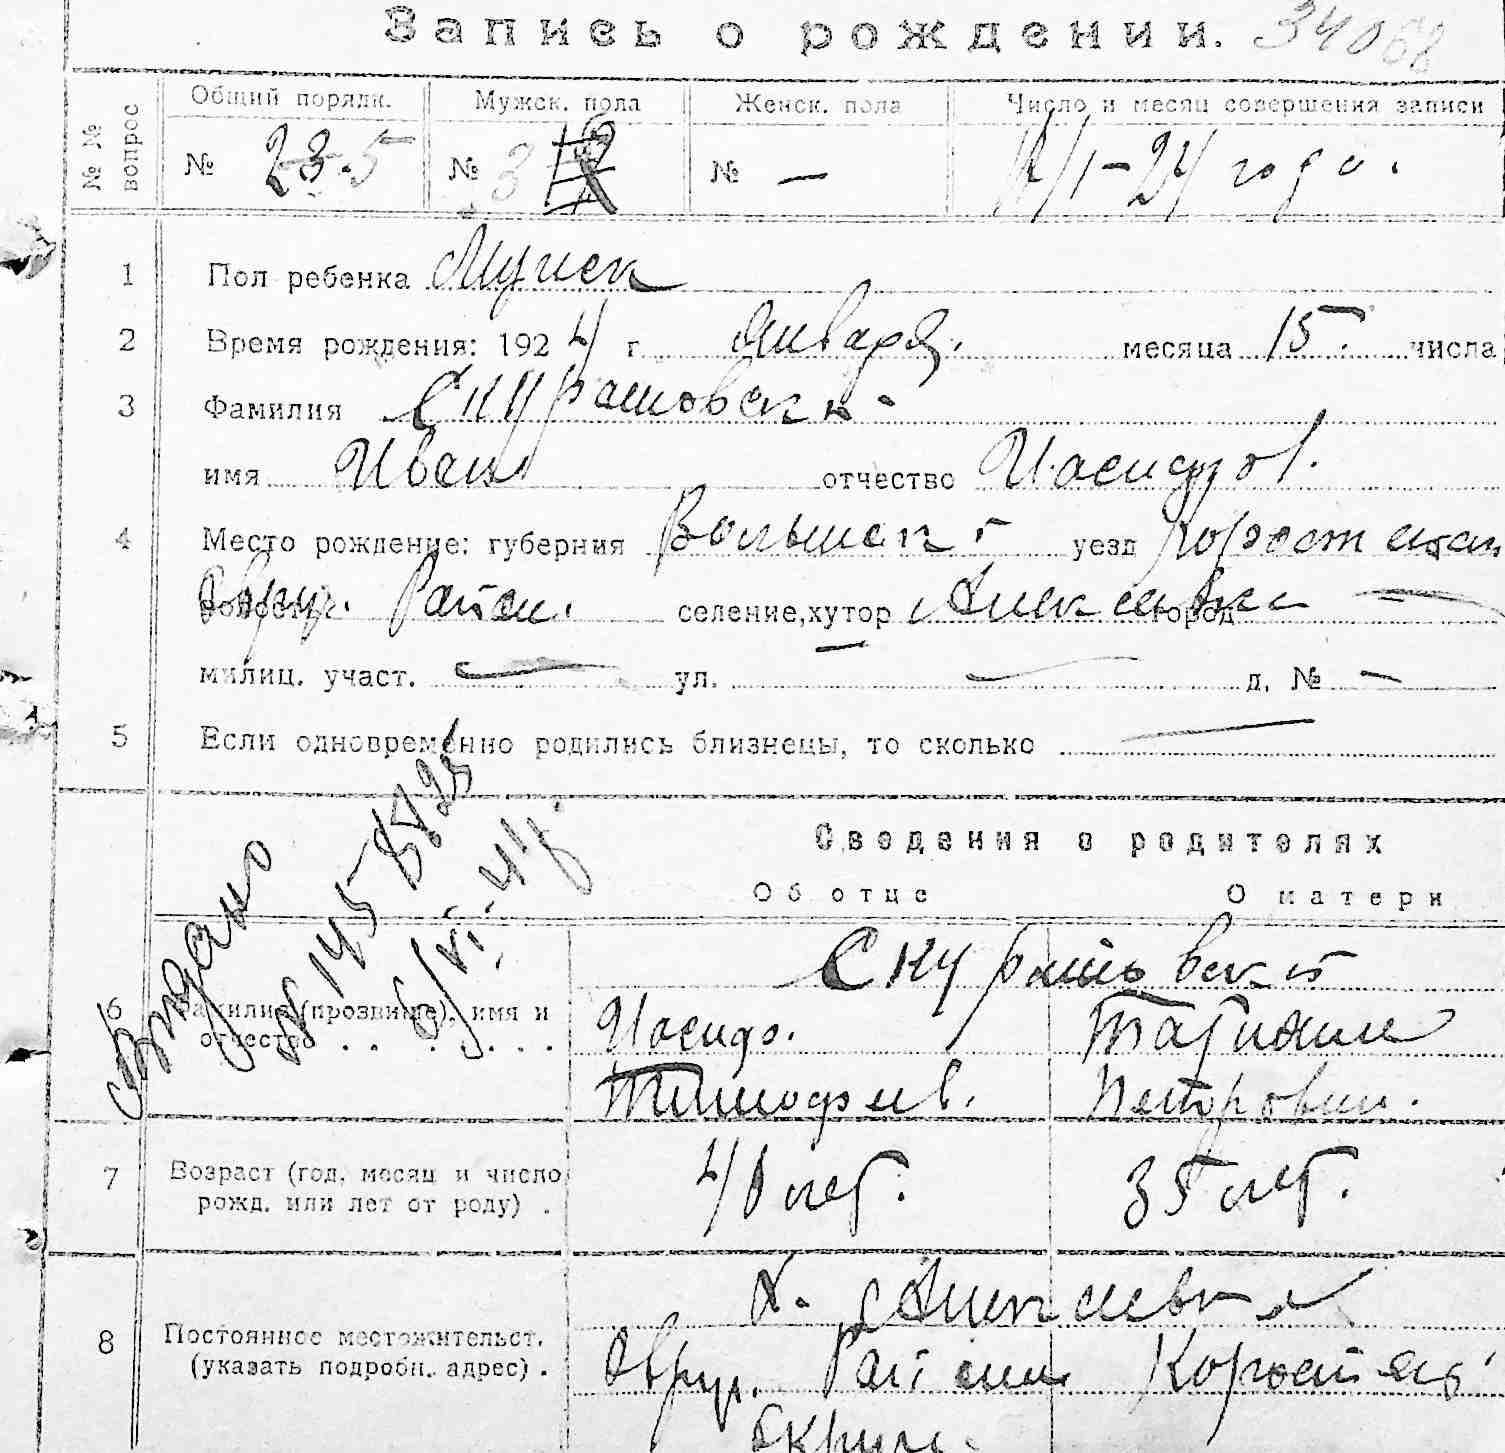 Запись о рождении. 34068
№ № вопрос
Общий порядк. Мужск. пола Женск. пола Число и месяц совершения записи
№ 23.5 № 3 № — /1-24 года.
1 Пол ребенка Мужск
2 Время рождения: 1924 г. Января. месяца 15. числа
3 Фамилия Скурашовск
имя Иван отчество Иосидов.
4 Место рождение: губерния Волынск. уезд Коростенск
волость Овруч. Район. селение, хутор Алексеевка город —
милиц. участ. — ул. — д. № —
5 Если одновременно родились близнецы, то сколько —
Сведения о родителях
Об отце О матери
Выдано
№ 145
6/VI. 41 г.
Скурашовск
6 Фамилия (прозвище), имя и отчество . . . . . .
Иосидо. Татиана
Тимофеев. Петровна.
7 Возраст (год, месяц и число рожд. или лет от роду) .
40 лет. 35 лет.
8 Постоянное местожительст. (указать подробн. адрес) .
х. Алексеевка
Овруч. Район Коростень
Округ.